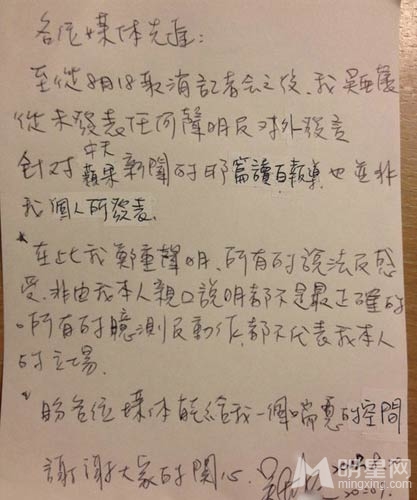 各位媒体先進:
至從8月18取消記者會之後,我吳亞馨
從未發表任何聲明及对外發言
中天
針对蘋果新聞的那篇讀百報導,也並非
我個人所發表.
*在此我鄭重聲明,所有的說法及感
受,非由我本人親口說明都不是最正確的
。所有的臆測及動作,都不代表我本人
的立場.
*盼各位媒体能給我一個喘息的空間
謝謝大家的関心.
明星网
mingxing.com